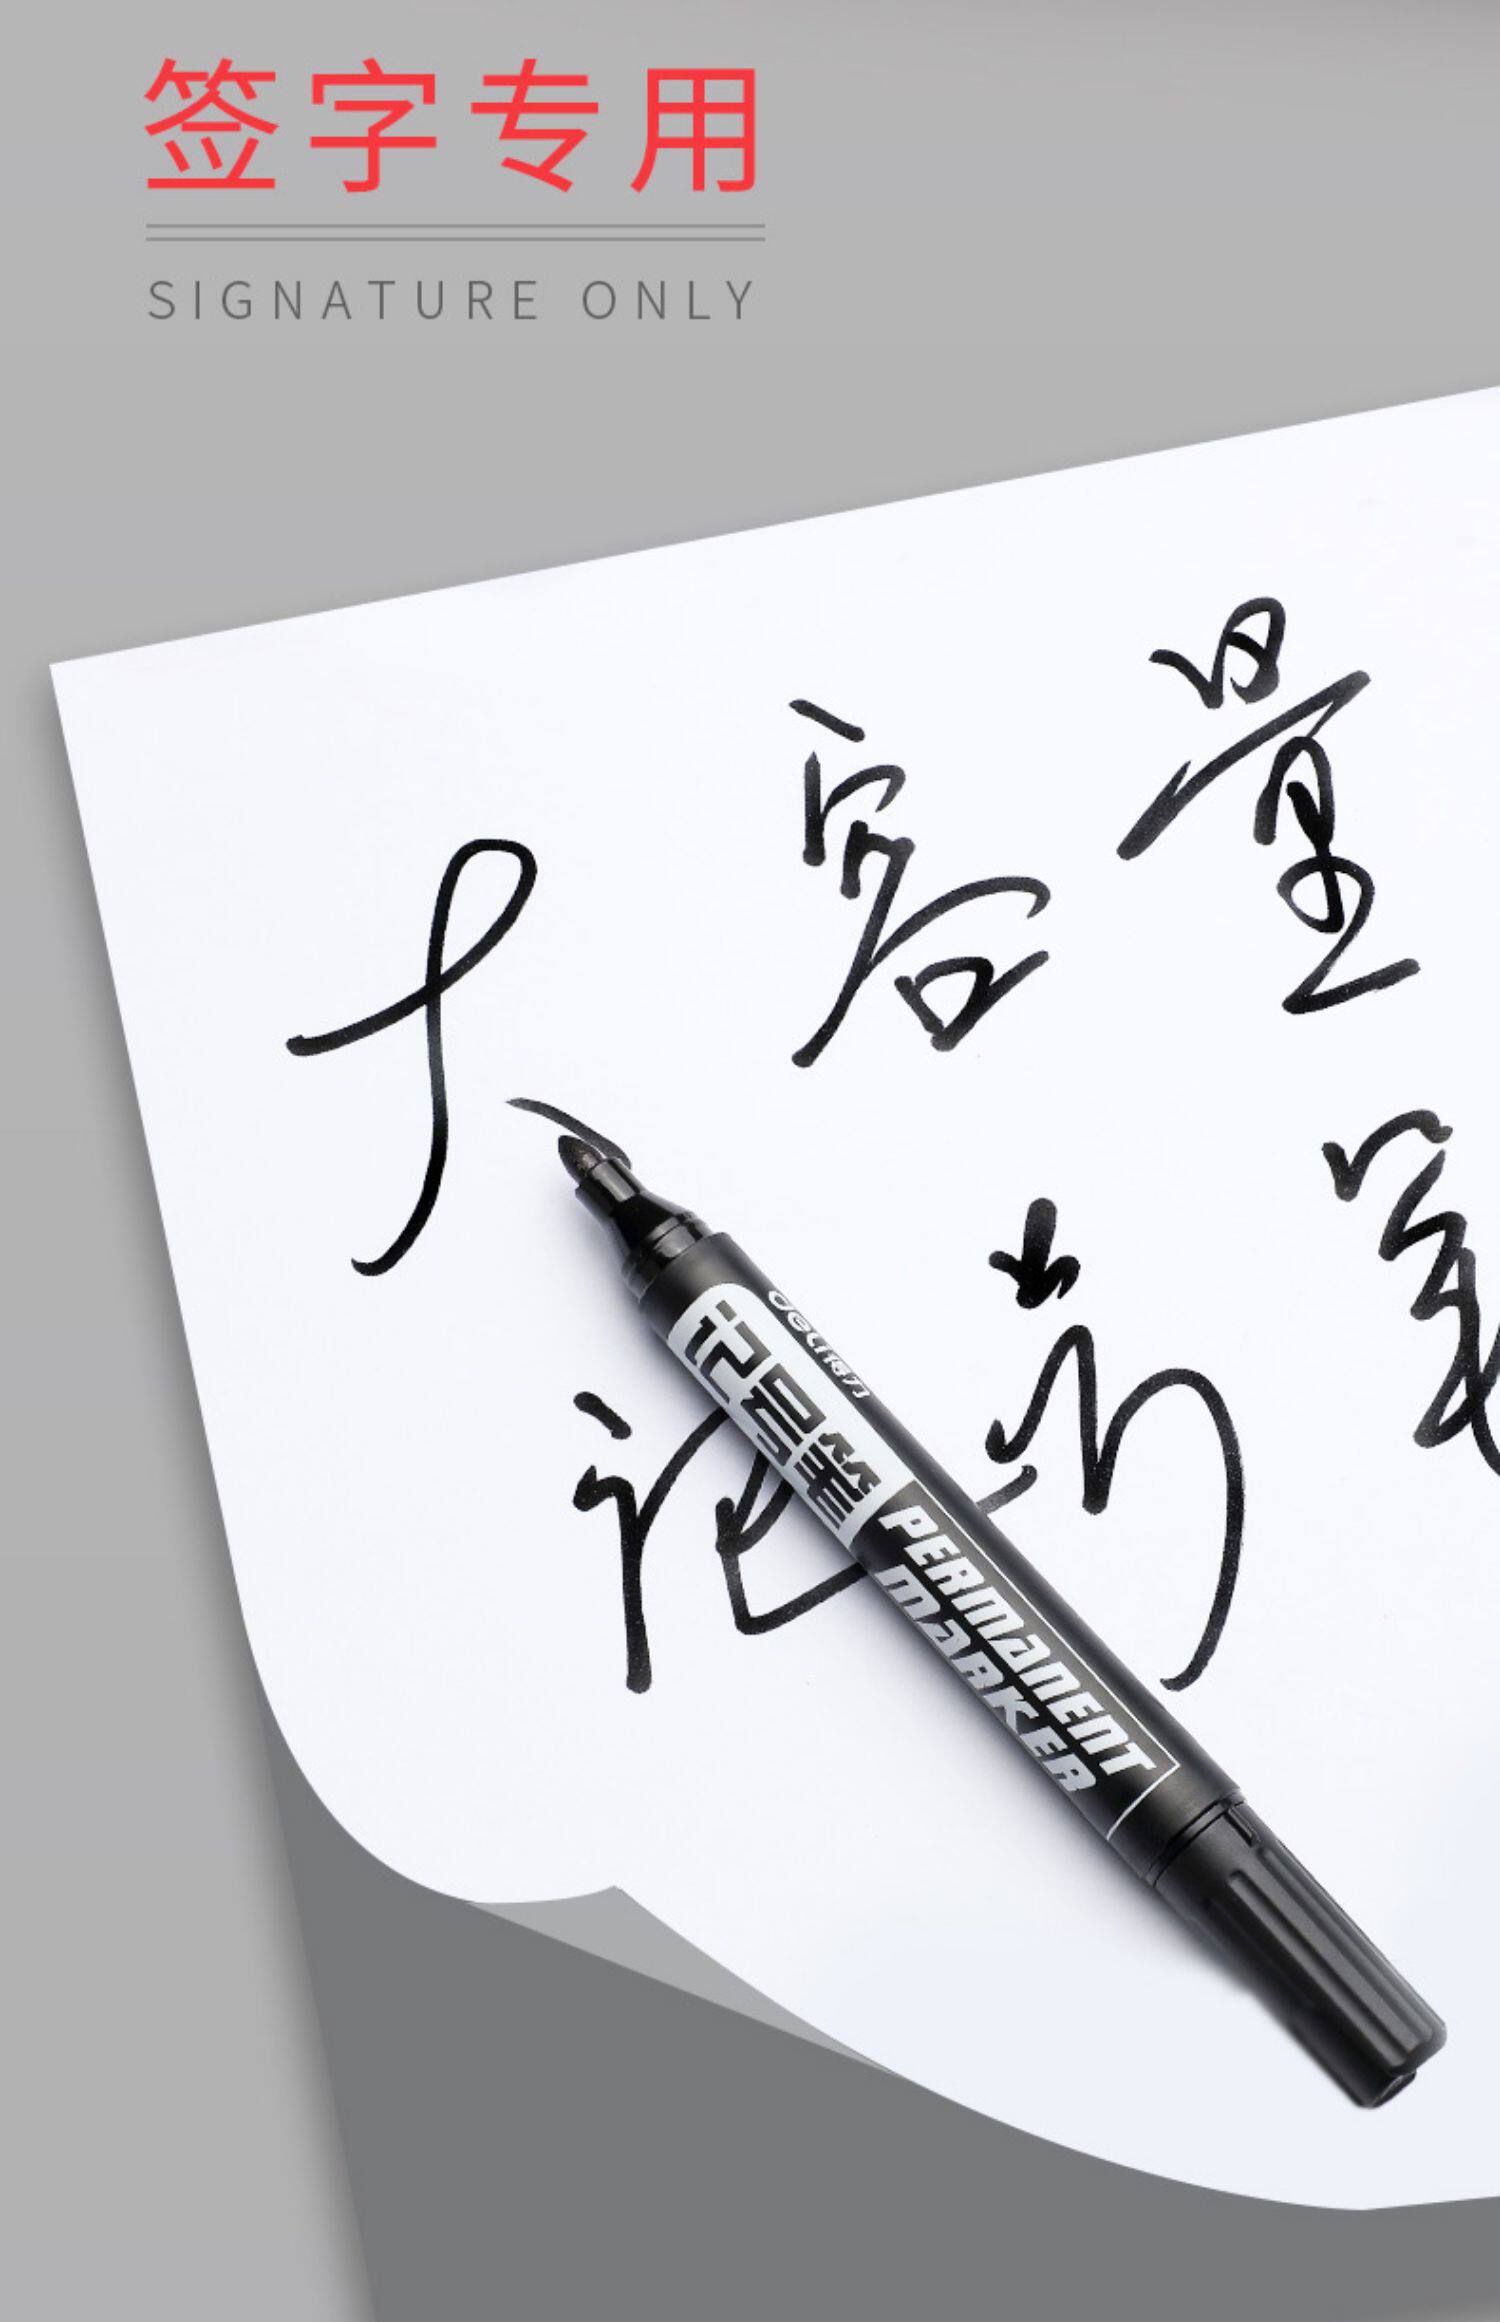 签字专用
SIGNATURE ONLY
大容量
记号笔
deli得力
记号笔
PERMANENT
MARKER